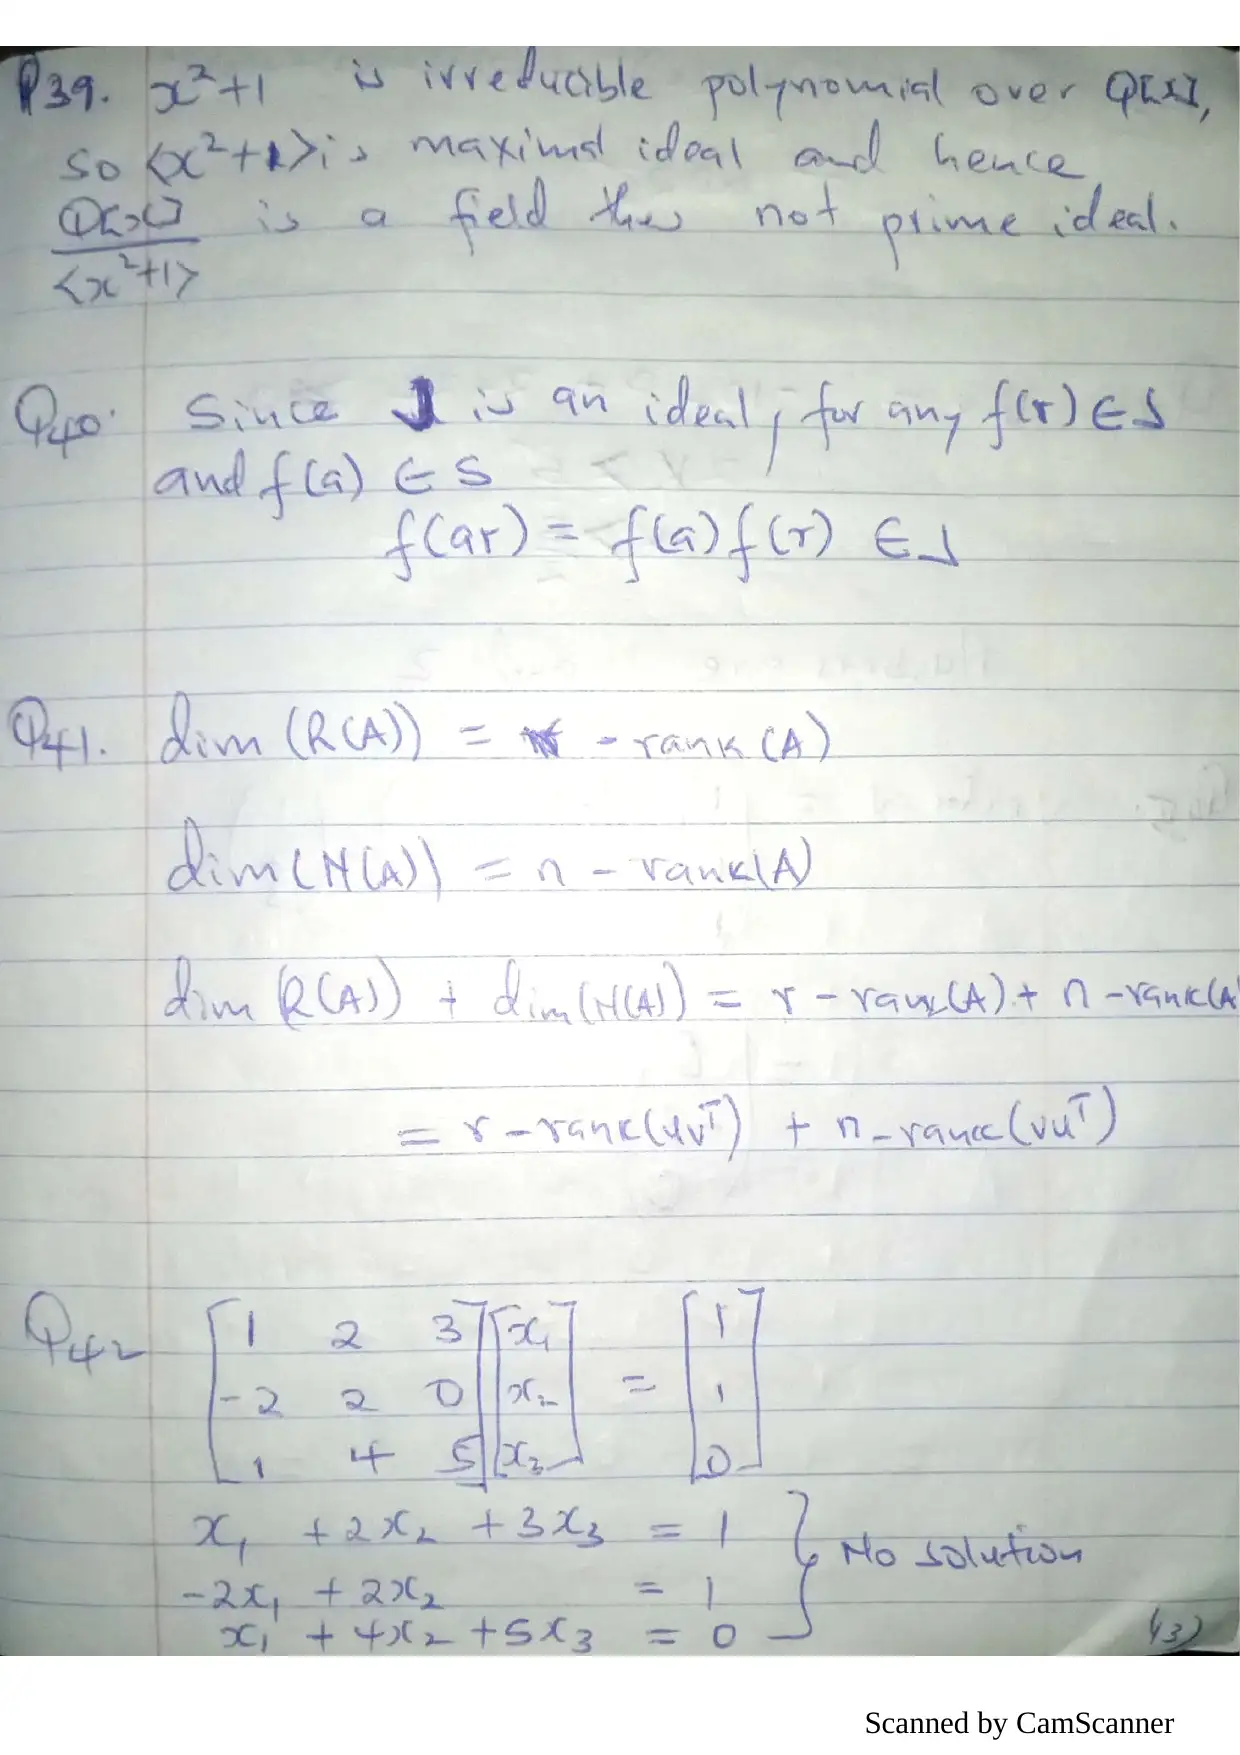 Q39. x²+1 is irreducible polynomial over Q[x],
so <x²+1> is maximal ideal and hence
Q[x]/<x²+1> is a field thus not prime ideal.
Q40. Since J is an ideal, for any f(r) ∈ J
and f(a) ∈ S
f(ar) = f(a) f(r) ∈ J
Q41. dim (R(A)) = - rank (A)
dim (N(A)) = n - rank(A)
dim (R(A)) + dim (N(A)) = r - rank(A) + n - rank(A
= r - rank(uvᵀ) + n - rank(vuᵀ)
Q42 [1 2 3] [x₁] = [1]
[-2 2 0] [x₂] [1]
[1 4 5] [x₃] [0]
x₁ + 2x₂ + 3x₃ = 1
-2x₁ + 2x₂ = 1 } No solution
x₁ + 4x₂ + 5x₃ = 0
(43)
Scanned by CamScanner